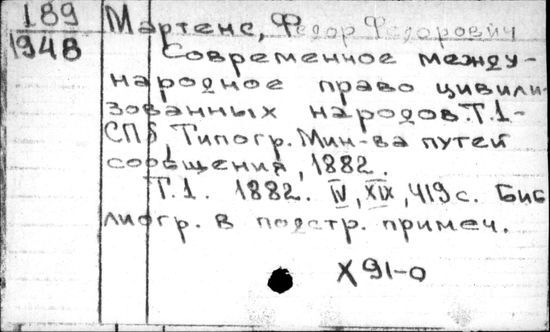 189
1948
Мартенс, Федор Федорович
Современное между-
народное право цивили-
зованных народов. Т.1-
СПб, Типогр. Мин-ва путей
сообщения, 1882.
Т.1. 1882. IV, XIX, 419 с. Биб
лиогр. в подстр. примеч.
X 91-0